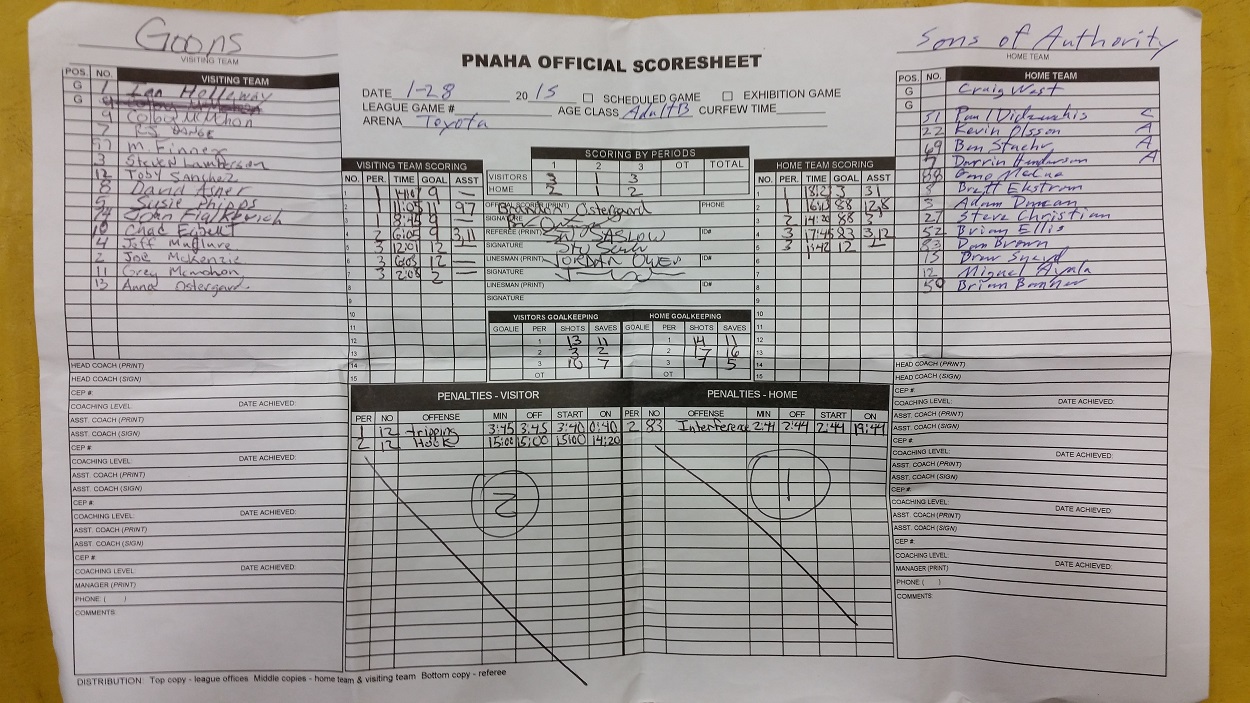 Goons
VISITING TEAM
Sons of Authority
HOME TEAM
PNAHA OFFICIAL SCORESHEET
DATE 1-28 2015 SCHEDULED GAME EXHIBITION GAME
LEAGUE GAME # AGE CLASS Adult B CURFEW TIME
ARENA Toyota
POS. NO. VISITING TEAM
G 1 Ian Holloway
G
9 Colby McMahon
7
M. Finney
3 Steven Lamberson
12 Toby Sanchez
8 David Asher
5 Susie Phipps
John Figlkovich
10 Chad Egbert
4 Jeff Maclure
2 Joe McKenzie
11 Grey Mcmahon
13 Anna Ostergard
HEAD COACH (PRINT)
HEAD COACH (SIGN)
CEP #
COACHING LEVEL: DATE ACHIEVED:
ASST. COACH (PRINT)
ASST. COACH (SIGN)
CEP #
COACHING LEVEL: DATE ACHIEVED:
ASST. COACH (PRINT)
ASST. COACH (SIGN)
CEP #:
COACHING LEVEL: DATE ACHIEVED:
ASST. COACH (PRINT)
ASST. COACH (SIGN)
CEP #:
COACHING LEVEL: DATE ACHIEVED:
MANAGER (PRINT)
PHONE: ( )
COMMENTS:
VISITING TEAM SCORING
NO. PER. TIME GOAL ASST
1 1 9 —
2 1 11:05 11 97
3 1 9 —
4 2 6:05 9 3,11
5 3 12:01 12 —
6 3 6:03 12 —
7 3 2:08 2 —
8
9
10
11
12
13
14
15
SCORING BY PERIODS
1 2 3 OT TOTAL
VISITORS 3 3
HOME 2 1 2
OFFICIAL SCORER (PRINT) Brandon Ostergard PHONE
SIGNATURE
REFEREE (PRINT) SASLOW ID#
SIGNATURE
LINESMAN (PRINT) JORDAN OWEN ID#
SIGNATURE
LINESMAN (PRINT) ID#
SIGNATURE
VISITORS GOALKEEPING HOME GOALKEEPING
GOALIE PER SHOTS SAVES GOALIE PER SHOTS SAVES
1 13 11 1 14 11
2 3 2 2 17 16
3 10 7 3 7 5
OT OT
HOME TEAM SCORING
NO. PER. TIME GOAL ASST
1 1 18:23 3 31
2 1 88 12,8
3 2 14:20 88 3
4 3 17:45 83 3,12
5 3 12 —
6
7
8
9
10
11
12
13
14
15
PENALTIES - VISITOR
PER NO OFFENSE MIN OFF START ON
1 12 tripping 3:45 3:45 3:40 0:40
2 12 Hook 15:00 15:00 15:00 14:20
2
PENALTIES - HOME
PER NO. OFFENSE MIN OFF START ON
2 83 Interference 2:44 2:44 2:44 19:44
1
POS. NO. HOME TEAM
G Craig West
G
51 Paul C
22 Kevin Olsson A
69 Ben Staehr A
7 Darrin Henderson A
88
8 Brett Ekstrom
3 Adam Duncan
27 Steve Christian
52 Brian Ellis
83 Dan Brown
13 Drew
12 Miguel Ayala
50 Brian Banner
HEAD COACH (PRINT)
HEAD COACH (SIGN)
CEP #
COACHING LEVEL: DATE ACHIEVED:
ASST. COACH (PRINT)
ASST. COACH (SIGN)
CEP #
COACHING LEVEL: DATE ACHIEVED:
ASST. COACH (PRINT)
ASST. COACH (SIGN)
CEP #:
COACHING LEVEL: DATE ACHIEVED:
ASST. COACH (PRINT)
ASST. COACH (SIGN)
CEP #:
COACHING LEVEL: DATE ACHIEVED:
MANAGER (PRINT)
PHONE ( )
COMMENTS:
DISTRIBUTION: Top copy - league offices Middle copies - home team & visiting team Bottom copy - referee